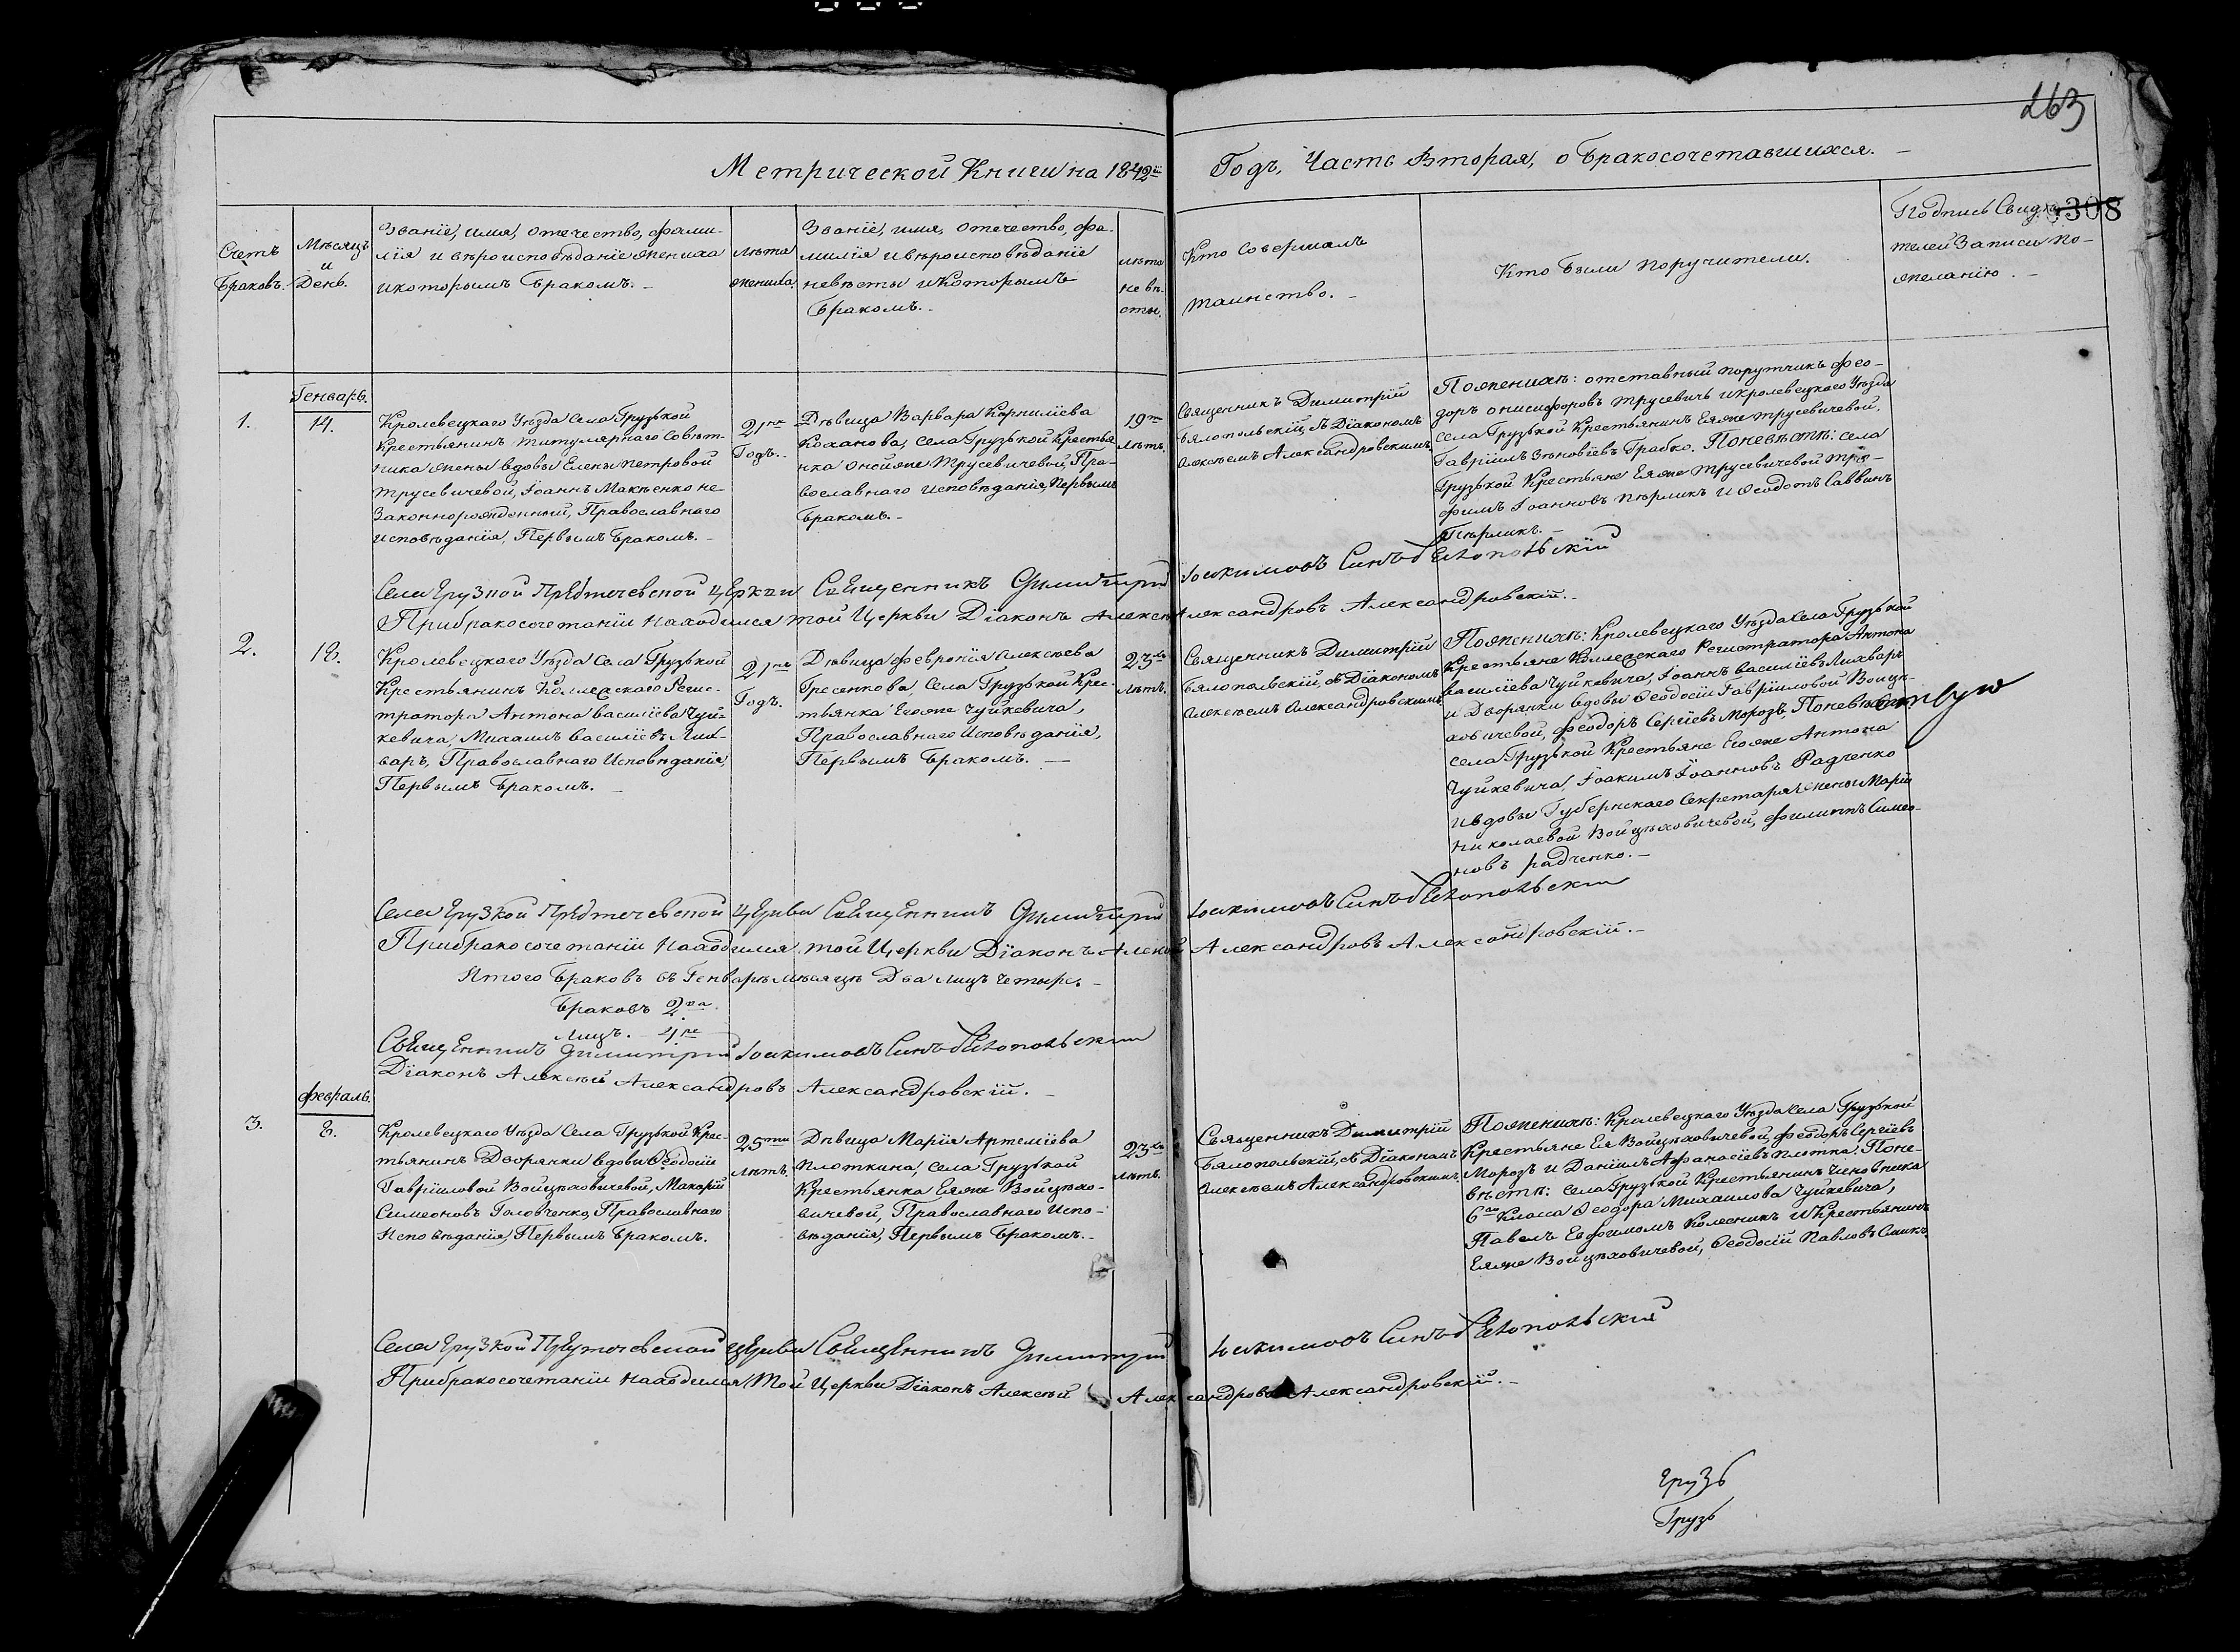 263
Метрической Книги на 1842й Годъ, Часть Вторая, о бракосочетавшихся.
308
Счетъ
браковъ.
Мѣсяцъ
и
День.
Званіе, имя, отечество, фами-
лія и вѣроисповѣданіе жениха
и которымъ бракомъ.
Лѣта
жениха.
Званіе, имя, отечество, фа-
милія и вѣроисповѣданіе
невѣсты и которымъ
бракомъ.
Лѣта
невѣ-
сты.
Кто совершалъ
таинство.
Кто были поручители.
Подпись Свидѣ-
телей Записи по-
желанію.
Генварь.
1.
14.
Кролевецкаго Уѣзда Села Грузькой
Крестьянинъ титулярнаго Совѣт-
ника жены вдовы Елены Петровой
Трусевичевой, Іоаннъ Макѣенко не-
законнорожденный, Православнаго
исповѣданія, Первымъ бракомъ.
21нъ
Годъ.
Дѣвица Варвара Корниліева
Коханова, Села Грузькой Крестья-
нка онойже Трусевичевой, Пра-
вославнаго исповѣданія, Первымъ
бракомъ.
19ть
Лѣтъ.
Священникъ Димитрій
Бялопольскій, съ Діакономъ
Алексѣемъ Александровскимъ.
Поженихѣ: отставный порутчикъ Фео-
доръ Онисифоровъ Трусевичъ и Кролевецкаго Уѣзда
села Грузькой Крестьянинъ Еяже Трусевичевой,
Гавріилъ Зѣновіевъ Грабко. Поневѣстѣ: села
Грузькой Крестьяне Еяже Трусевичевой Тро-
фимъ Іоанновъ Пырликъ и Феодотъ Саввинъ
Пырликъ.
Села Грузкой Предтечевской Церкви Священникъ Димитрій Іоакимовъ Синъ Бѣлопольскій
При бракосочетаніи находился той Церкви Діаконъ Алексѣй Александровъ Александровскій.
2.
18.
Кролевецкаго Уѣзда Села Грузькой
Крестьянинъ Коллежскаго Регис-
тратора Антона Василіева Чуй-
кевича, Михаилъ Василіевъ Лих-
варъ, Православнаго Исповѣданія,
Первымъ бракомъ.
21нъ
Годъ.
Дѣвица Февронія Алексѣева
Гресенкова, Села Грузькой Крес-
тьянка Егоже Чуйкевича,
Православнаго Исповѣданія,
Первымъ бракомъ.
23хъ
Лѣтъ.
Священникъ Димитрій
Бялопольскій, съ Діакономъ
Алексѣемъ Александровскимъ.
Поженихѣ: Кролевецкаго Уѣзда Села Грузькой
Крестьяне Коллежскаго Регистратора Антона
Василіева Чуйкевича, Іоаннъ Василіевъ Лихваръ
и Дворянки вдовы Феодосіи Гавріиловой Войцѣ-
ховичевой, Феодоръ Сергіевъ Морозъ, Поневѣстѣ
села Грузькой Крестьяне Егоже Антона
Чуйкевича, Іоакимъ Іоанновъ Радченко
и вдовы Губернскаго Секретаря жены Маріи
Николаевой Войцѣховичевой, Филиппъ Симео-
новъ Радченко.
Села Грузкой Предтечевской Церкви Священникъ Димитрій Іоакимовъ Синъ Бѣлопольскій
При бракосочетаніи находился той Церкви Діаконъ Алексѣй Александровъ Александровскій.
Итого браковъ въ Генварѣ мѣсяцѣ Два лицъ четыре.
Браковъ 2ва.
Лицъ. 4ре
Священникъ Димитрій Іоакимовъ Синъ Бѣлопольскій
Діаконъ Алексѣй Александровъ Александровскій.
Февраль.
3.
8.
Кролевецкаго Уѣзда Села Грузькой Крес-
тьянинъ Дворянки вдовы Феодосіи
Гавріиловой Войцѣховичевой, Макарій
Симеоновъ Головченко, Православнаго
Исповѣданія, Первымъ бракомъ.
25ти
Лѣтъ.
Дѣвица Марія Артеміева
Плоткина, Села Грузькой
Крестьянка Еяже Войцѣхо-
вичевой, Православнаго Испо-
вѣданія, Первымъ бракомъ.
23хъ
Лѣтъ.
Священникъ Димитрій
Бялопольскій, съ Діакономъ
Алексѣемъ Александровскимъ.
Поженихѣ: Кролевецкаго Уѣзда Села Грузькой
Крестьяне Ея Войцѣховичевой, Феодоръ Сергіевъ
Морозъ и Даніилъ Афанасіевъ Плотка. Поне-
вѣстѣ: села Грузькой Крестьянинъ Чиновника
6го Класса Феодора Михаилова Чуйкевича,
Павелъ Евфимовъ Колесникъ и Крестьянинъ
Еяже Войцѣховичевой, Феодосій Павловъ Сликъ
Села Грузкой Предтечевской Церкви Священникъ Димитрій Іоакимовъ Синъ Бѣлопольскій
При бракосочетаніи находился той Церкви Діаконъ Алексѣй Александровъ Александровскій.
Грузь
Грузь